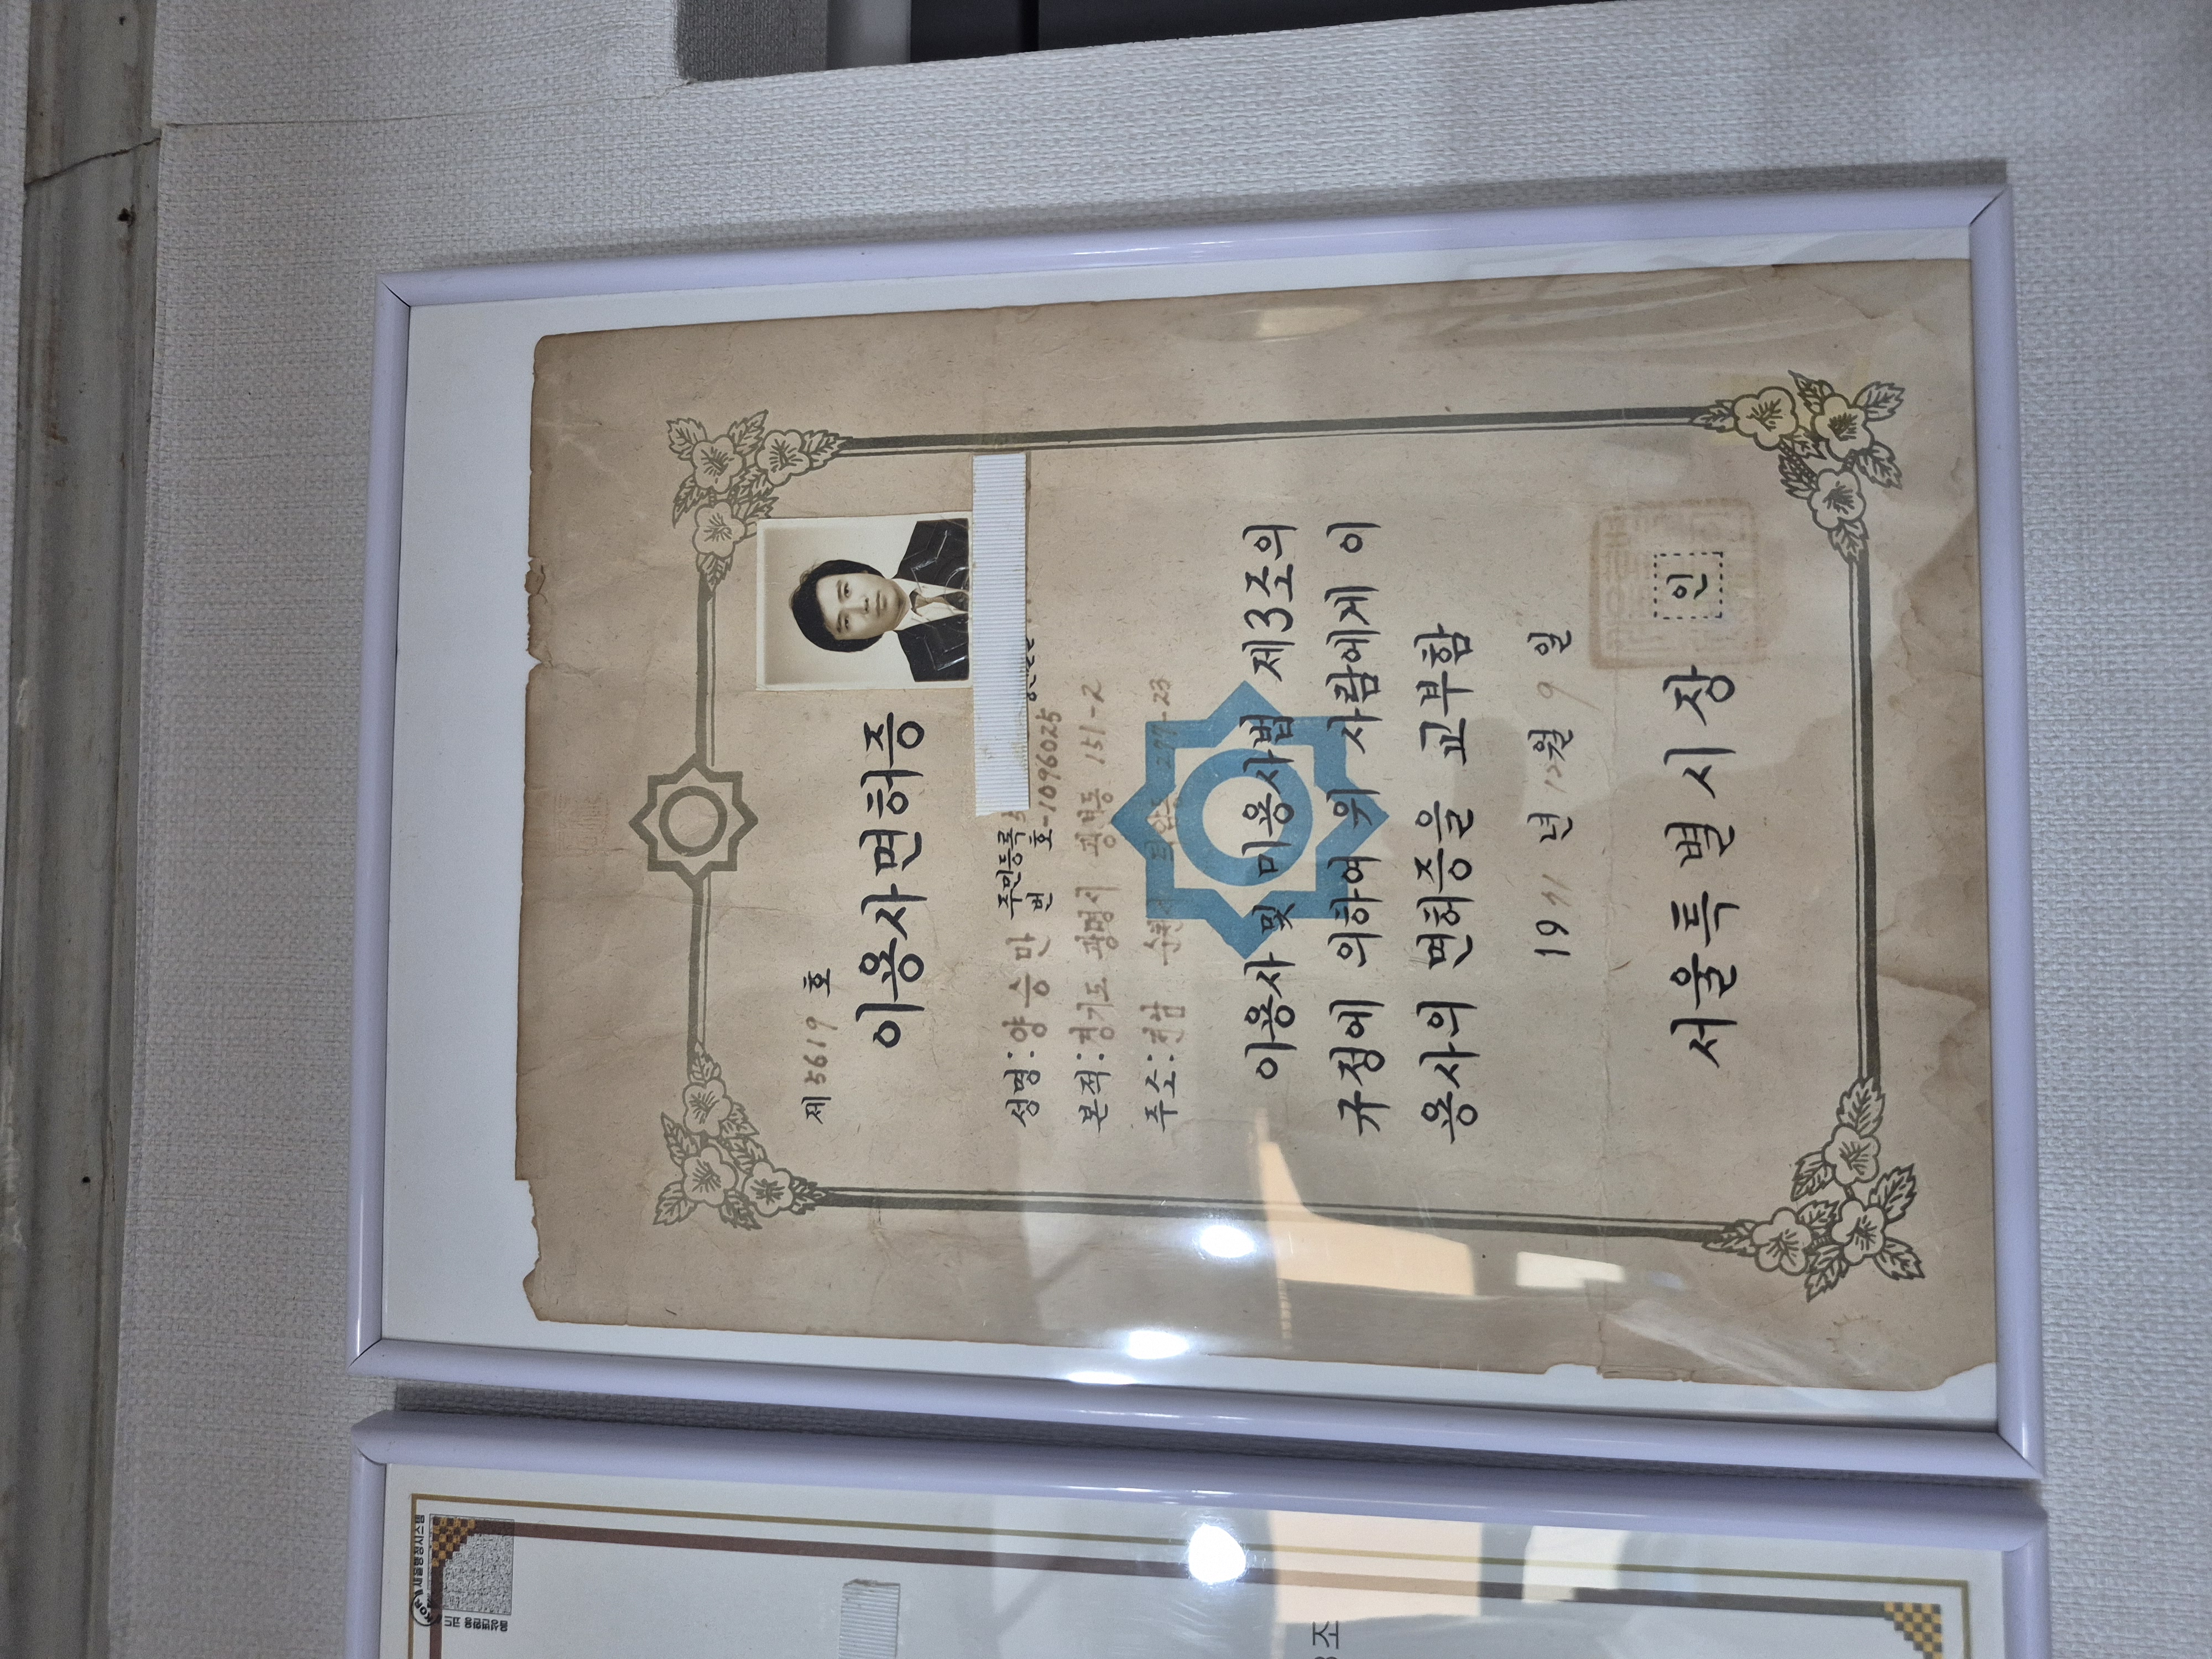 제 5619 호
이용사면허증
성명: 양승만 주민등록
번 호 -1096025
본적: 경기도 광명시 광명동 151-2
주소: 전남 순천시 -23
이용사 및 미용사법 제3조의
규정에 의하여 위 사람에게 이
용사의 면허증을 교부함
19 년 12월 9 일
서울특별시장 인
음성변환용 코드
조